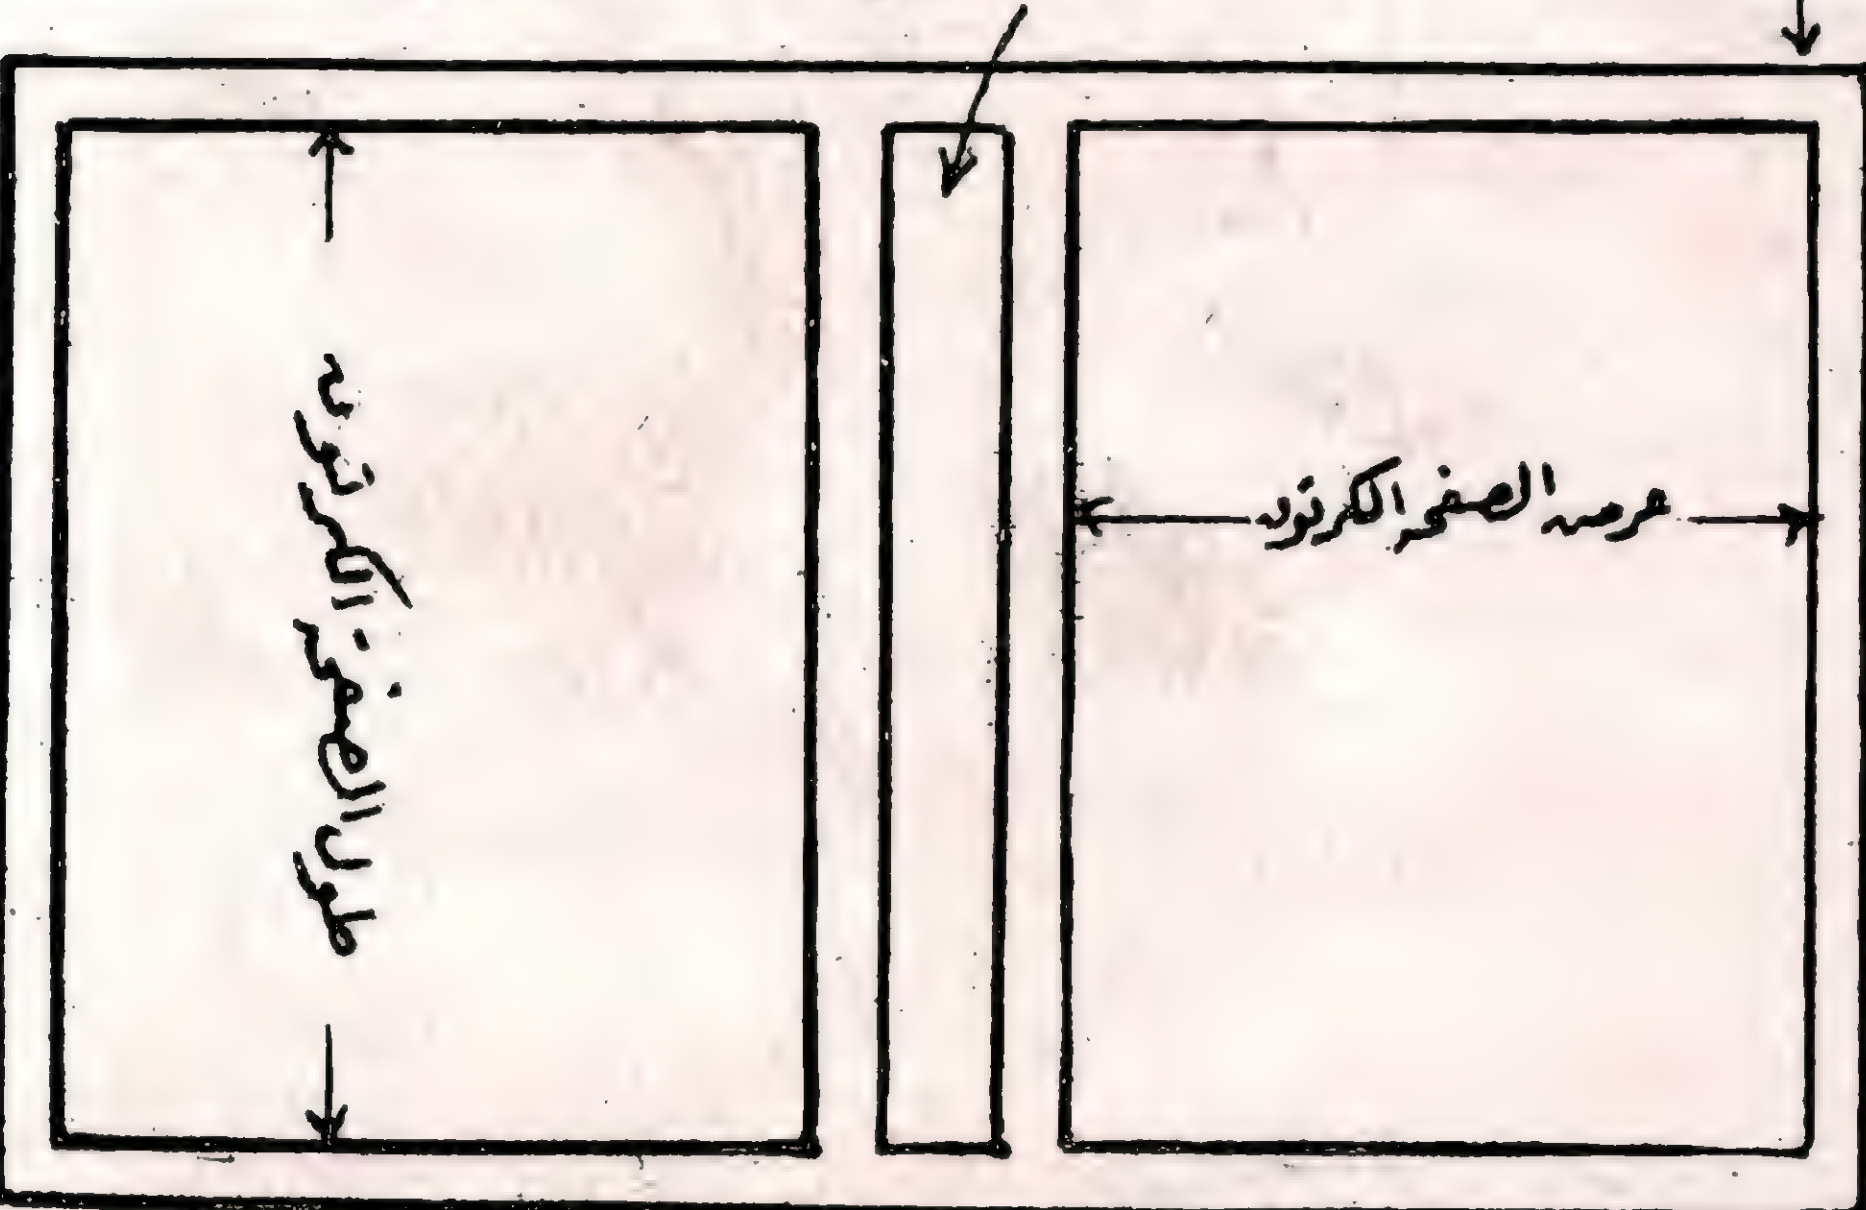 عرض الصفحة الكرتون
طول الصفحة الكرتون